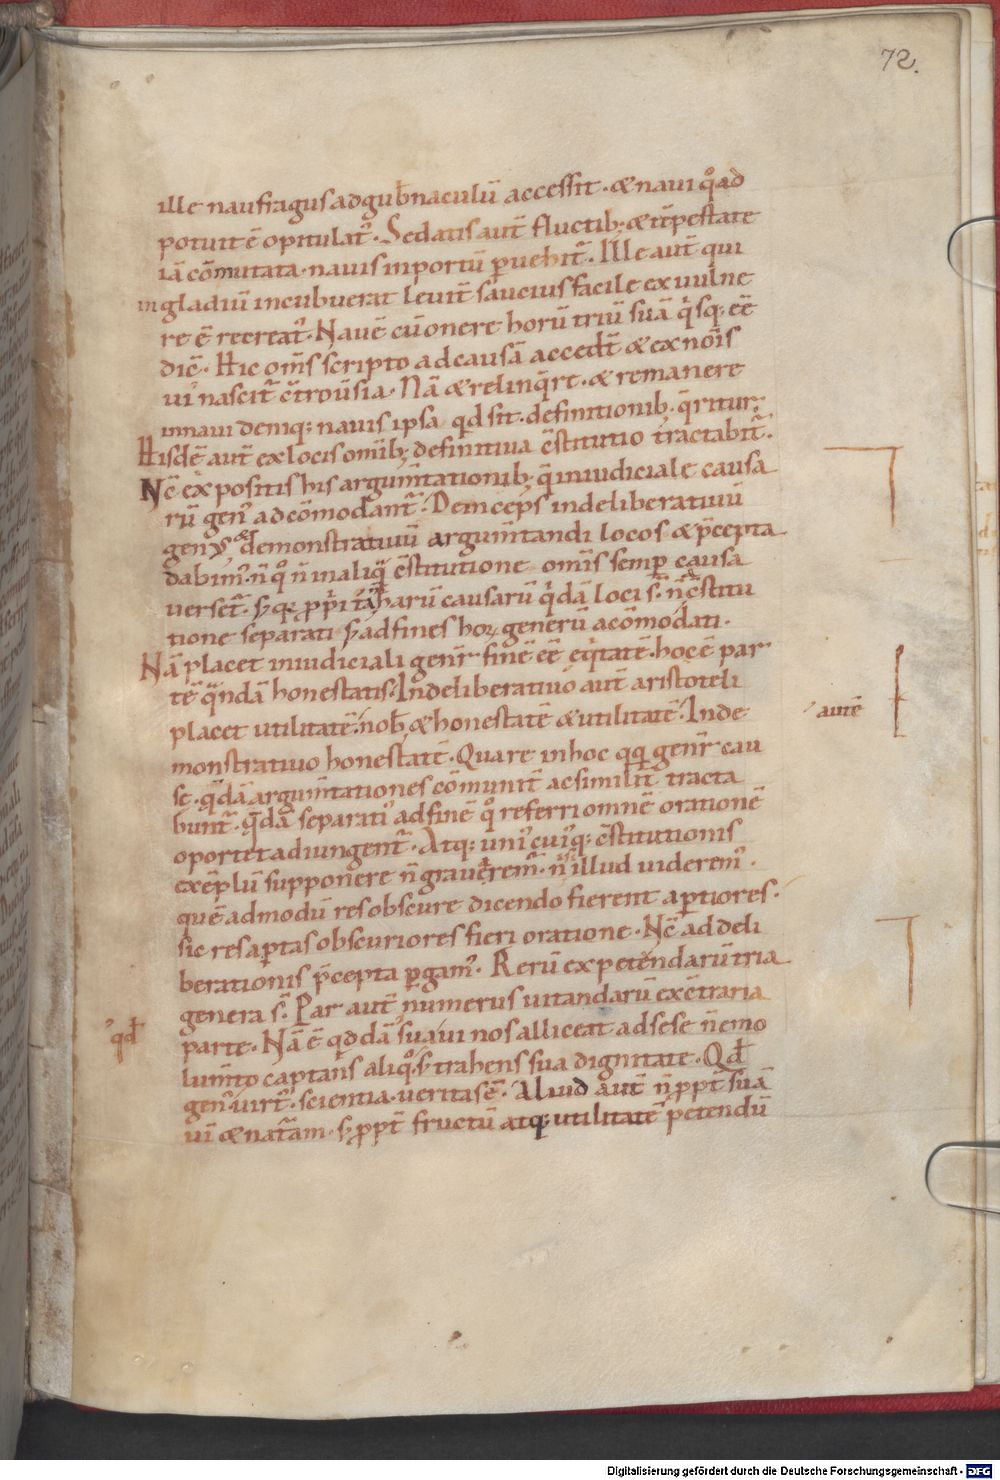 72.
ille naufragus ad gub̄naculū accessit · & naui qͦad
potuit ē opitulat᷒ · Sedatis aut̄ fluctib; & tēpestate
iā cōmutata · nauis in portū ꝑuehit᷒ · Ille aut̄ qui
in gladiū incubuerat leuit̄ saucius facile ex uulne
re ē recreat᷒ · Nauē cū onere horū triū suā qͥsq; eē
dic̄ · Hic om̄s scripto ad causā accedt̄ & ex nōīs
ui nascit᷒ c̄trou̅sia · Nā & relinq̄re · & remanere
in naui deniq; nauis ipsa qd sit · definitionib; q̄ritur ·
Hisdē aut̄ ex locis om̄ib; definitiua c̄stitutio tractabit᷒ ·
Nc̄ expositis his argum̄tationib; q̄ in iudiciale causa
rū gen᷒ adcōmodant᷒ · Deinceps in deliberatiuū
gen᷒ & demonstratiuū argum̄tandi locos & p̄cepta
dabim᷒ · n̄ qͦ n̄ in aliq̄ c̄stitutione omīs semꝑ causa
uerset᷒ · s; q; ꝓpͥi tam̄ harū causarū qͥdā loci s̄ · n̄ c̄stitu
tione separati s; ad fines hoꝝ generū acōmodati ·
Nā placet in iudiciali gener̄ finē eē eqͥtatē · hoc ē par
tē q̄ndā honestatis · In deliberatiuo aut̄ aristoteli
placet utilitatē · nob̄ & honestatē & utilitatē · In de
autē
monstratiuo honestatē · Quare in hoc qq gener̄ cau
se · q̄dā argum̄tationes cōmunit̄ ac similit̄ tracta
bunt᷒ · q̄dā separati᷒ ad finē qͦ referri omnē orationē
oportet adiungent᷒ · Atq; uni᷒ cui᷒q; c̄stitutionis
exēplū supponere n̄ grauarem᷒ · nͥsi illud uiderem᷒ ·
quē admodū res obscure dicendo fierent aꝑtiores ·
sic res aꝑtas obscuriores fieri oratione · Nc̄ ad deli
berationis p̄cepta ꝑgam᷒ · Rerū expetendarū tria
genera s̄ · Par aut̄ numerus uitandarū ex c̄traria
parte · Nā ē qddā sua ui nos alliceat ad sese n̄ emo
qd̄
lum̄to captans aliqͦ · s; trahens sua dignitate · Qd̄
gen᷒ uirt᷒ · scientia · ueritas ē · Aliud aut̄ n̄ ꝓpt̄ suā
uī & nat̄am · s; ꝓpt̄ fructū atq; utilitatē petendū
Digitalisierung gefördert durch die Deutsche Forschungsgemeinschaft - DFG